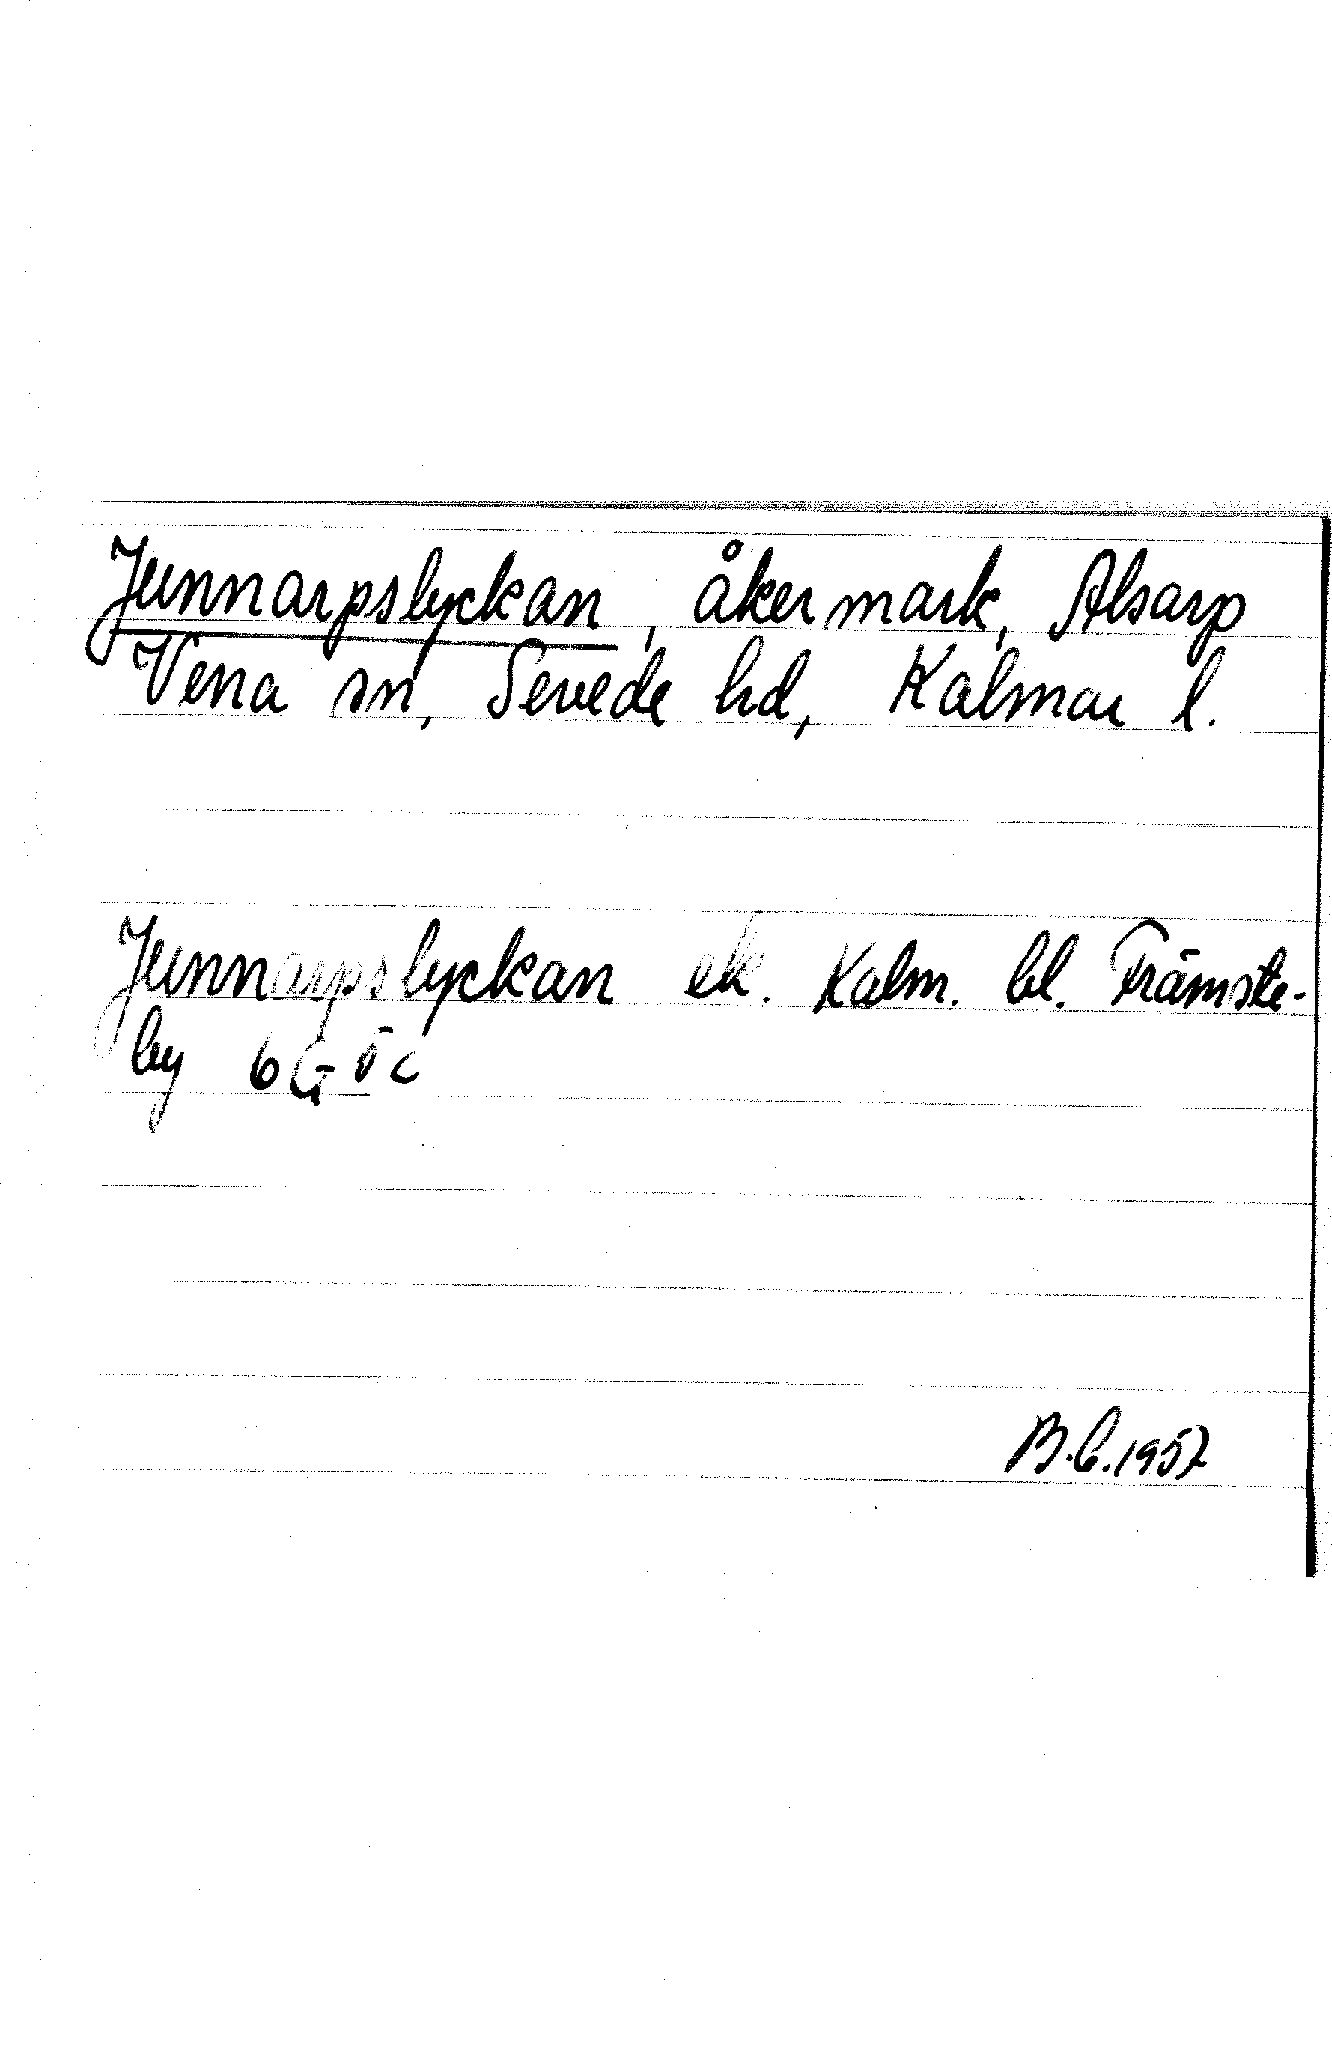 Junnarpslyckan, åkermark, Alsarp
Vena sn, Sevede hd, Kalmar l.
Junnarpslyckan ek. Kalm. bl. Främste-
by 6 G ö c
B.C. 1957